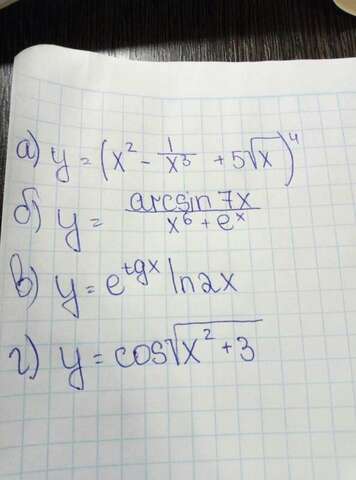 а) y = (x² - 1/x³ + 5√x)⁴
б) y = arcsin 7x / x⁶ + eˣ
в) y = e^tgx ln2x
г) y = cos√x² + 3